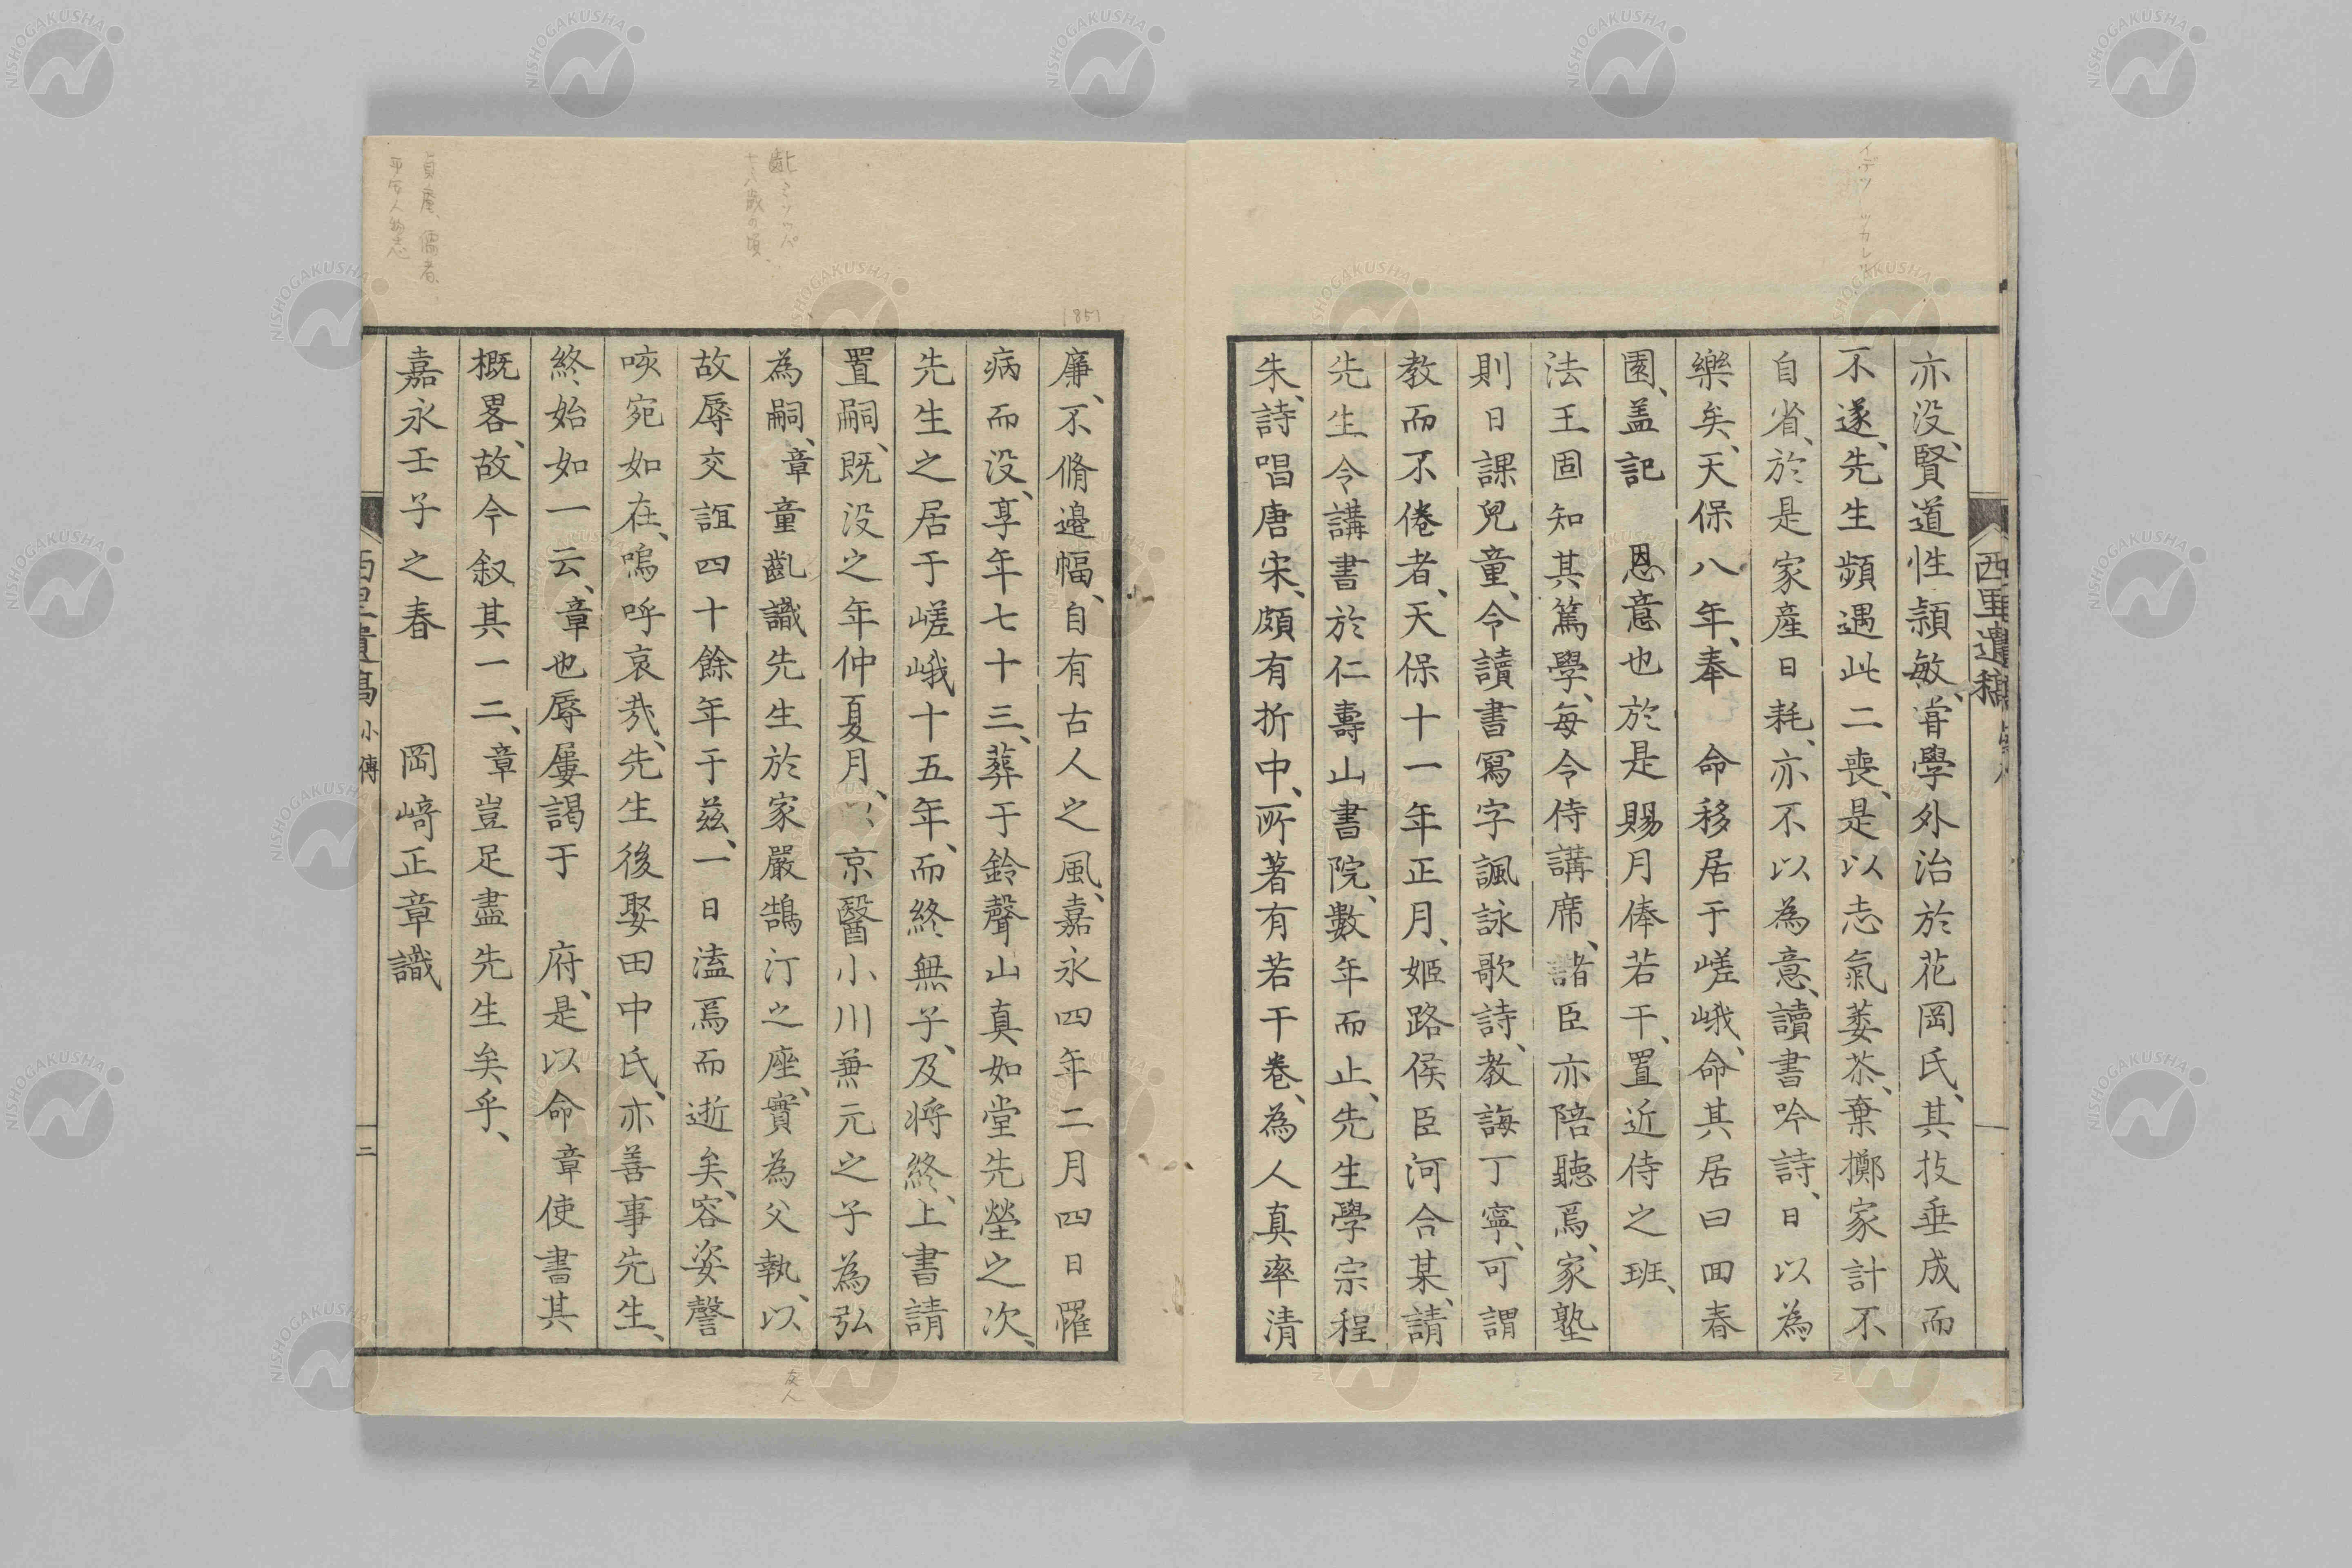 亦没、賢道性頴敏、甞學外治於花岡氏、其技垂成而
不遂、先生頻遇此二喪、是以志氣萎苶、棄擲家計不
自省、於是家産日耗、亦不以為意、讀書吟詩、日以為
樂矣、天保八年、奉　命移居于嵯峨、命其居曰回春
園、盖記　恩意也於是賜月俸若干、置近侍之班、
法王固知其篤學、每令侍講席、諸臣亦陪聽焉、家塾
則日課兒童、令讀書冩字諷詠歌詩、教誨丁寧、可謂
教而不倦者、天保十一年正月、姬路侯臣河合某、請
先生令講書於仁壽山書院、數年而止、先生學宗程
朱、詩唱唐宋、頗有折中、所著有若干卷、為人真率清
西里遺稿
廉、不脩邉幅、自有古人之風、嘉永四年二月四日罹
病而没、享年七十三、葬于鈴聲山真如堂先塋之次、
先生之居于嵯峨、十五年、而終無子、及将終、上書請
置嗣、既没之年仲夏月、以京醫小川兼元之子為弘
為嗣、章童齓識先生於家嚴鵠汀之座、實為父執、以
故辱交誼四十餘年于兹、一日溘焉而逝矣、容姿謦
咳宛如在、嗚呼哀哉、先生後娶田中氏、亦善事先生、
終始如一云、章也辱屢謁于　府、是以命章使書其
概畧、故今叙其一二、章豈足盡先生矣乎、
嘉永壬子之春　　岡﨑正章識
西里遺稿 小傳 二
イデツ ツカレツ
1851
齓ミソッパ
七、八歳の頃、
友人
貞庵、儒者、
平安人物志
NISHOGAKUSHA